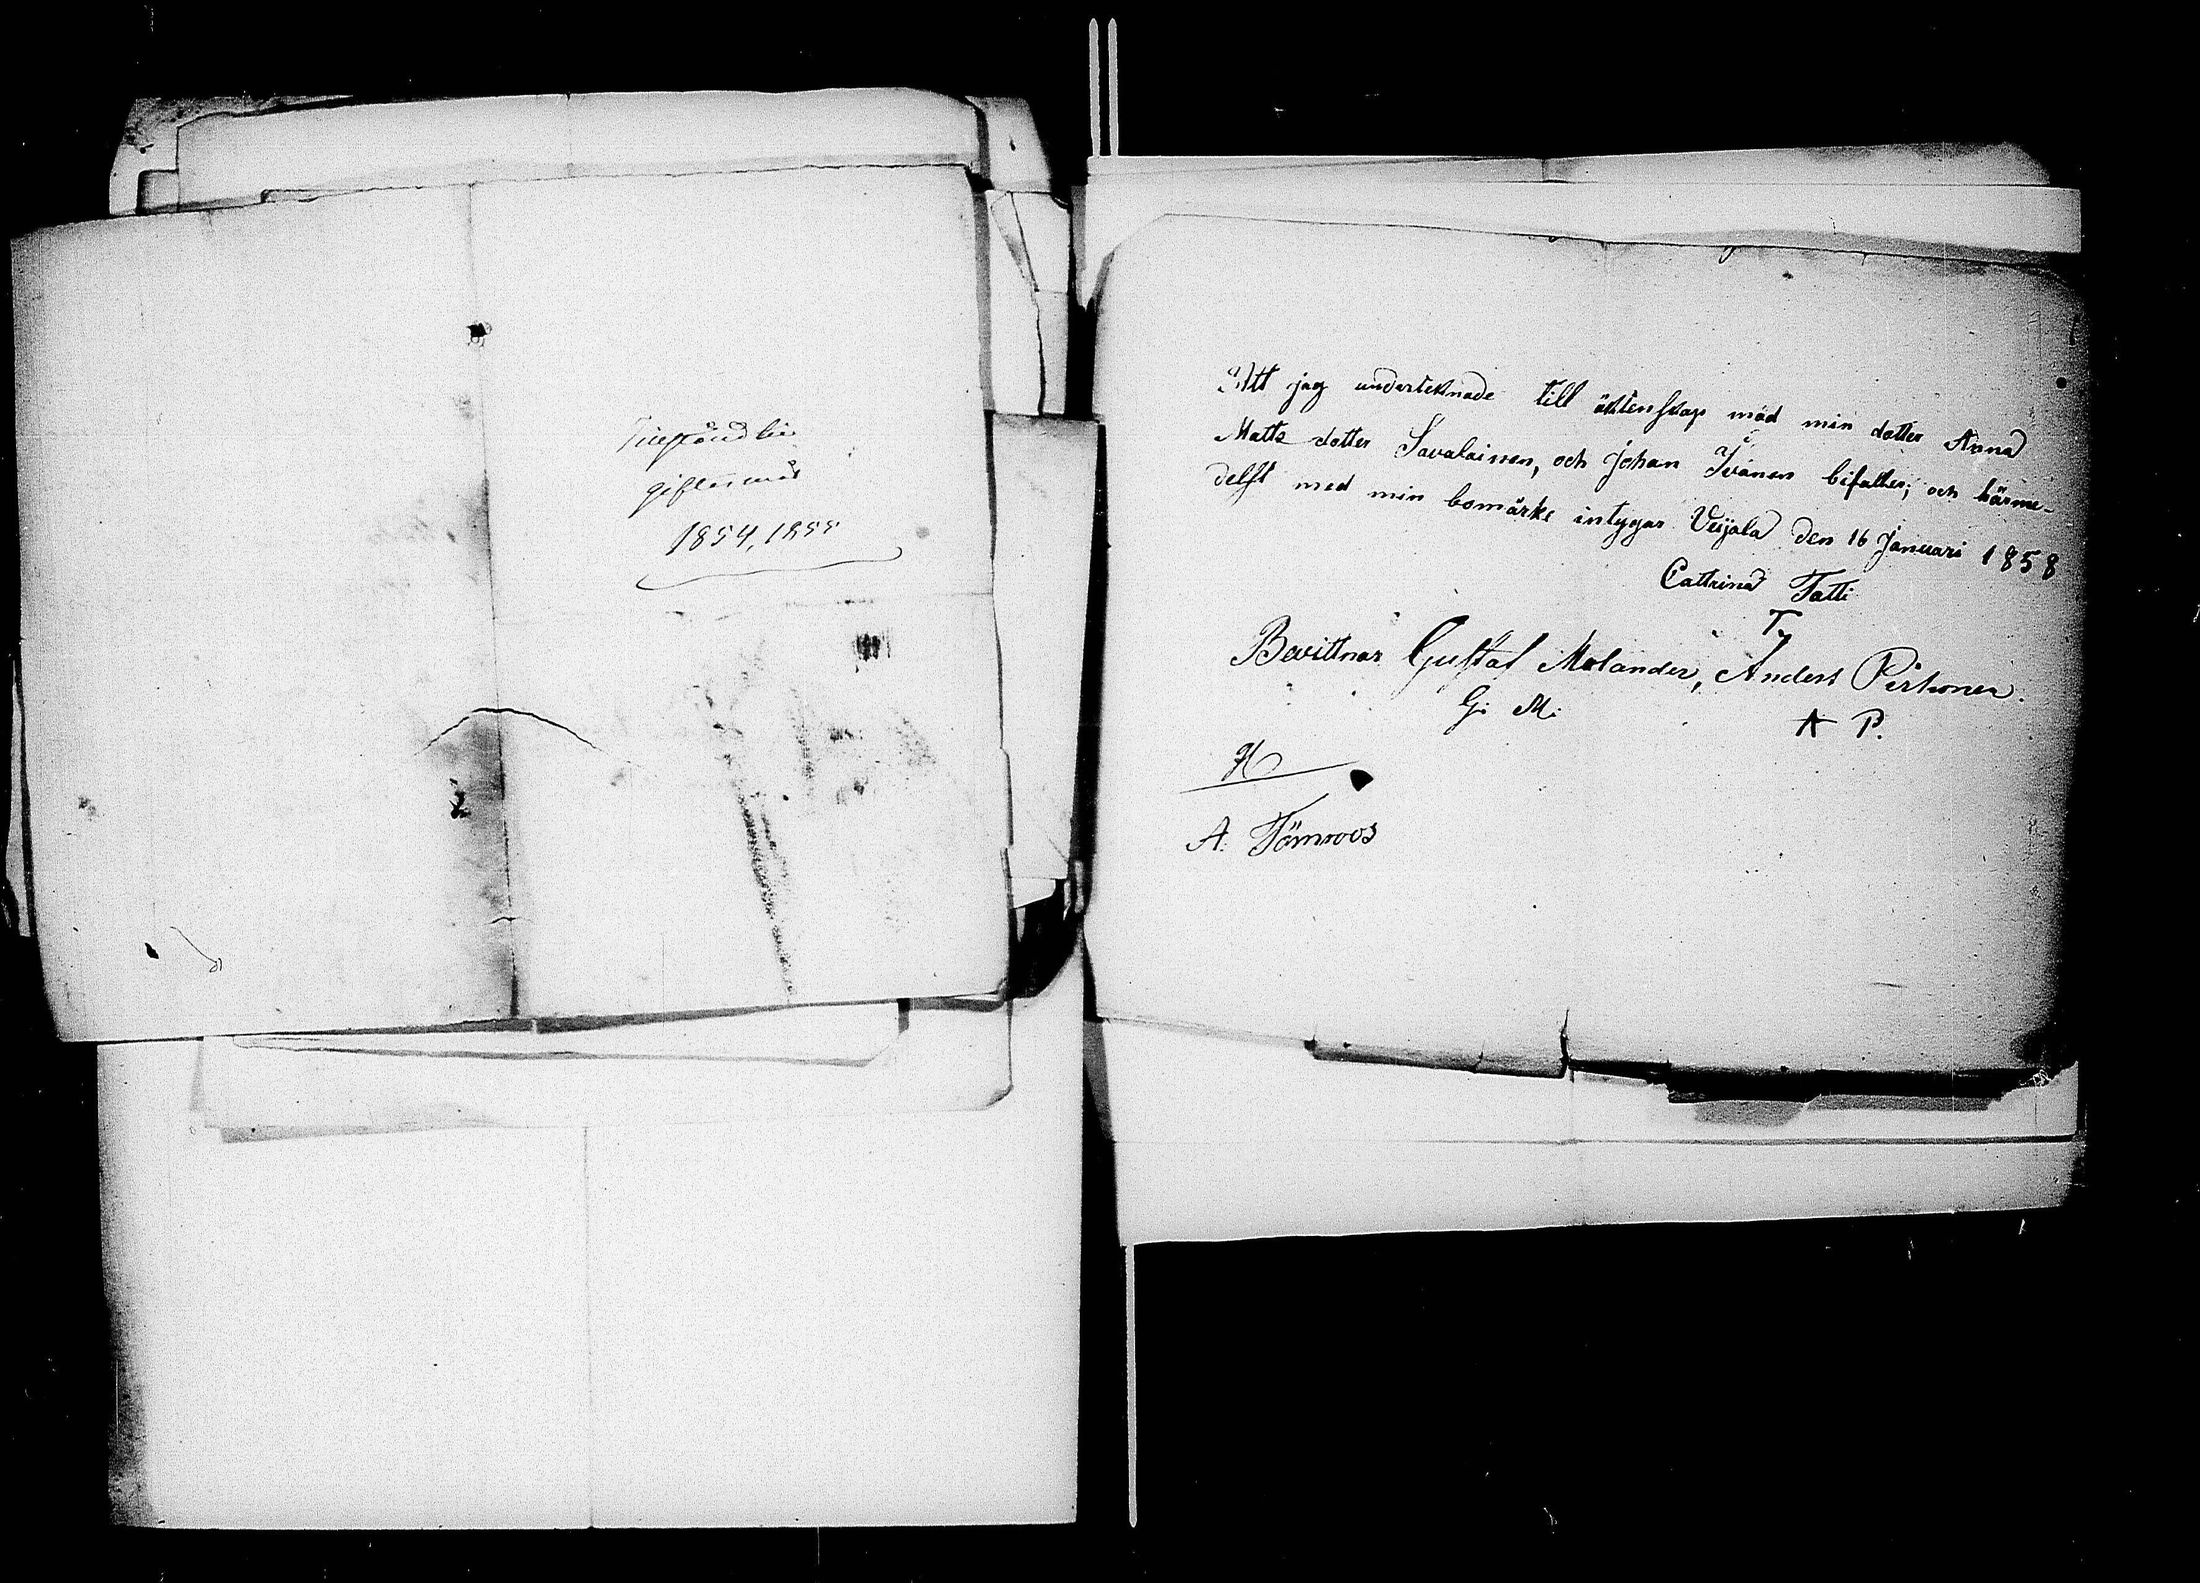 giftermål
1854, 1855
Att jag underteknade till äktenskap med min dotter Anna
Matts dotter Savalainen, och Johan Ivanen bifaller, och härme-
delst med min bomärke intygar Veijala den 16 Januari 1858
Cattrina Tatti
T
Bevittnar Gustaf Molander, Anders Pirhonen.
G. M. A P.
A. Törnroos